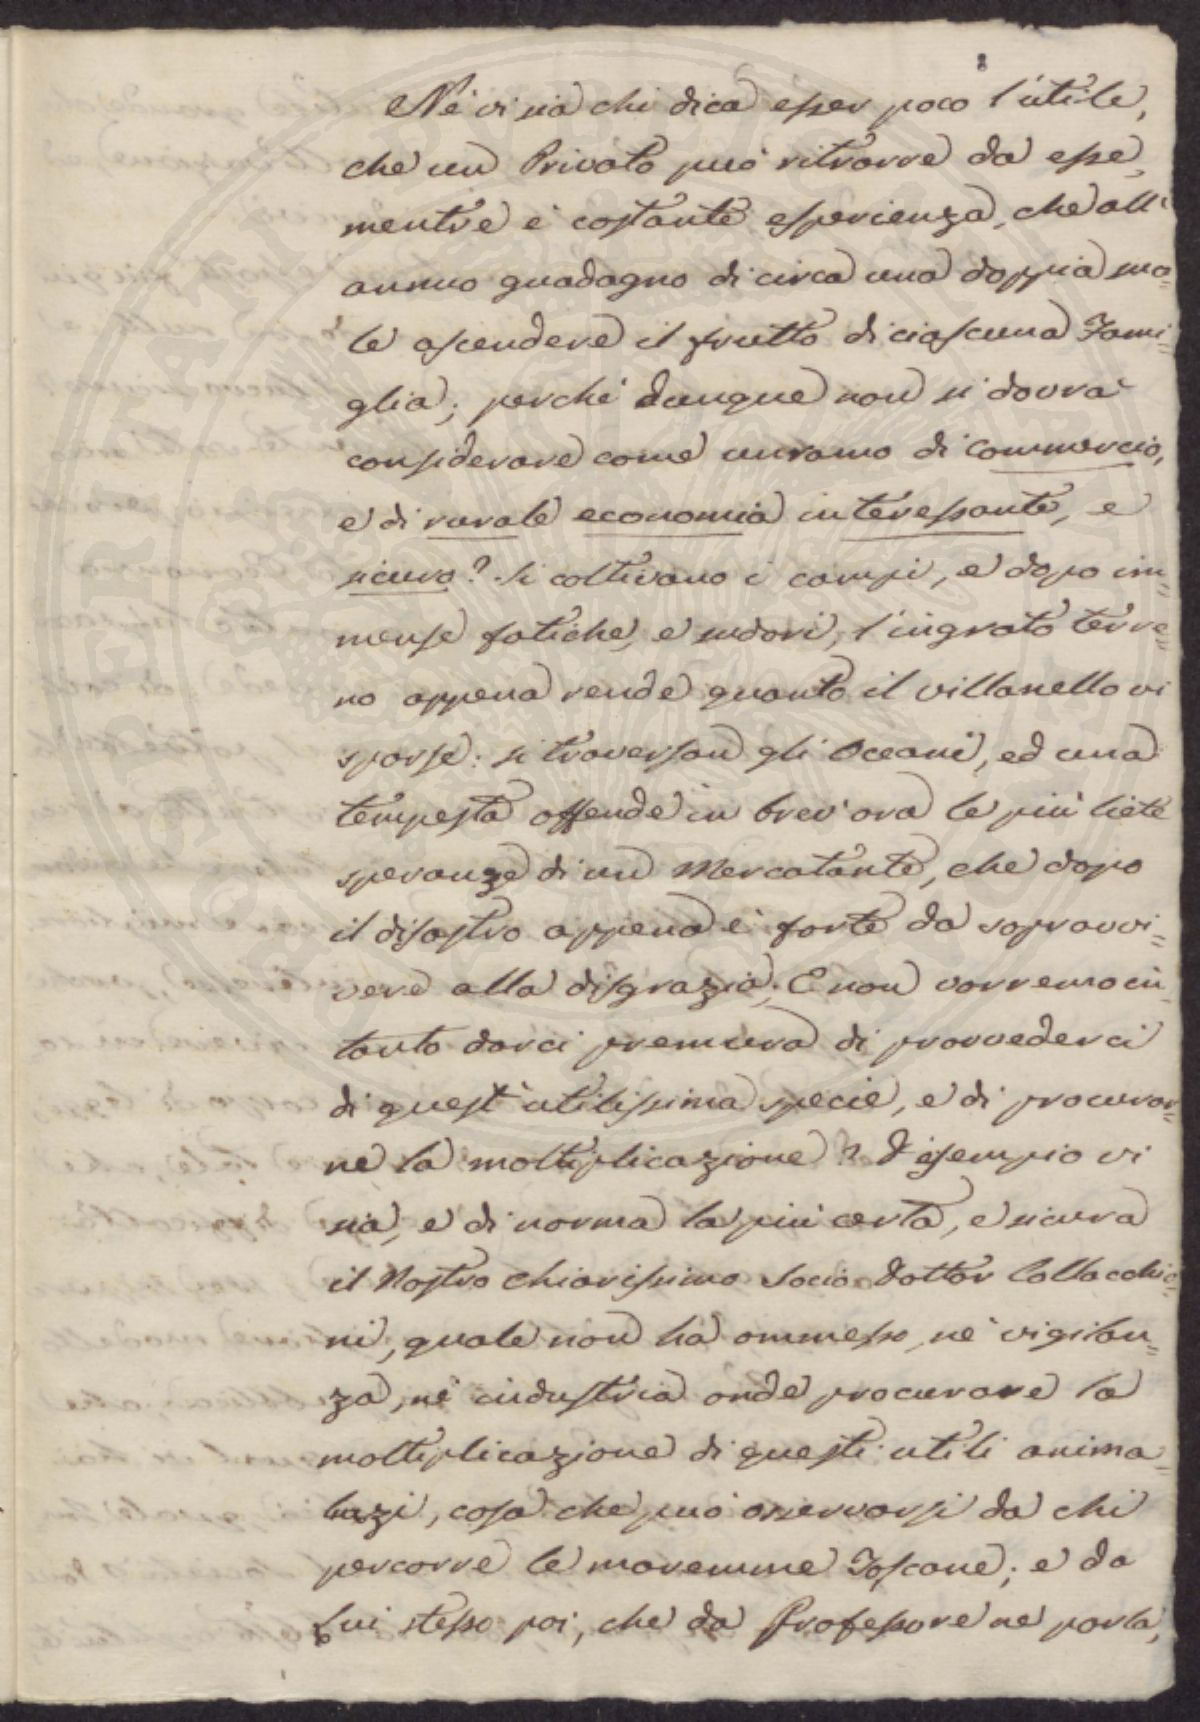 Nè vi sia chi dica esser poco l'utile,
che un Privato può ritrarre da esse,
mentre è costante esperienza, che all'
annuo guadagno di circa una doppia suo=
le ascendere il frutto di ciascuna Fami=
glia; perchè dunque non si dovrà
considerare come un ramo di commercio,
e di rurale economia interessante, e
sicuro? Si coltivano i campi, e dopo im=
mense fatiche, e sudori, l'ingrato terre=
no appena rende quanto il villanello vi
sparse: si traversan gli Oceani, ed una
tempesta offende in brev'ora le più liete
speranze di un Mercatante, che dopo
il disastro appena è forte da sopravvi=
vere alla disgrazia; E non vorremo in=
tanto darci premura di provvederci
di quest'utilissima specie, e di procurar=
ne la moltiplicazione? D'esempio vi
sia, e di norma la più certa, e sicura
il Nostro chiarissimo Socio Dottor Collacchio=
ni, quale non ha ommesso, nè vigilan=
za, nè industria onde procurare la
moltiplicazione di questi utili anima=
luzzi, cosa che può osservarsi da chi
percorre le maremme Toscane; e da
Lui stesso poi, che da Professore ne parla,